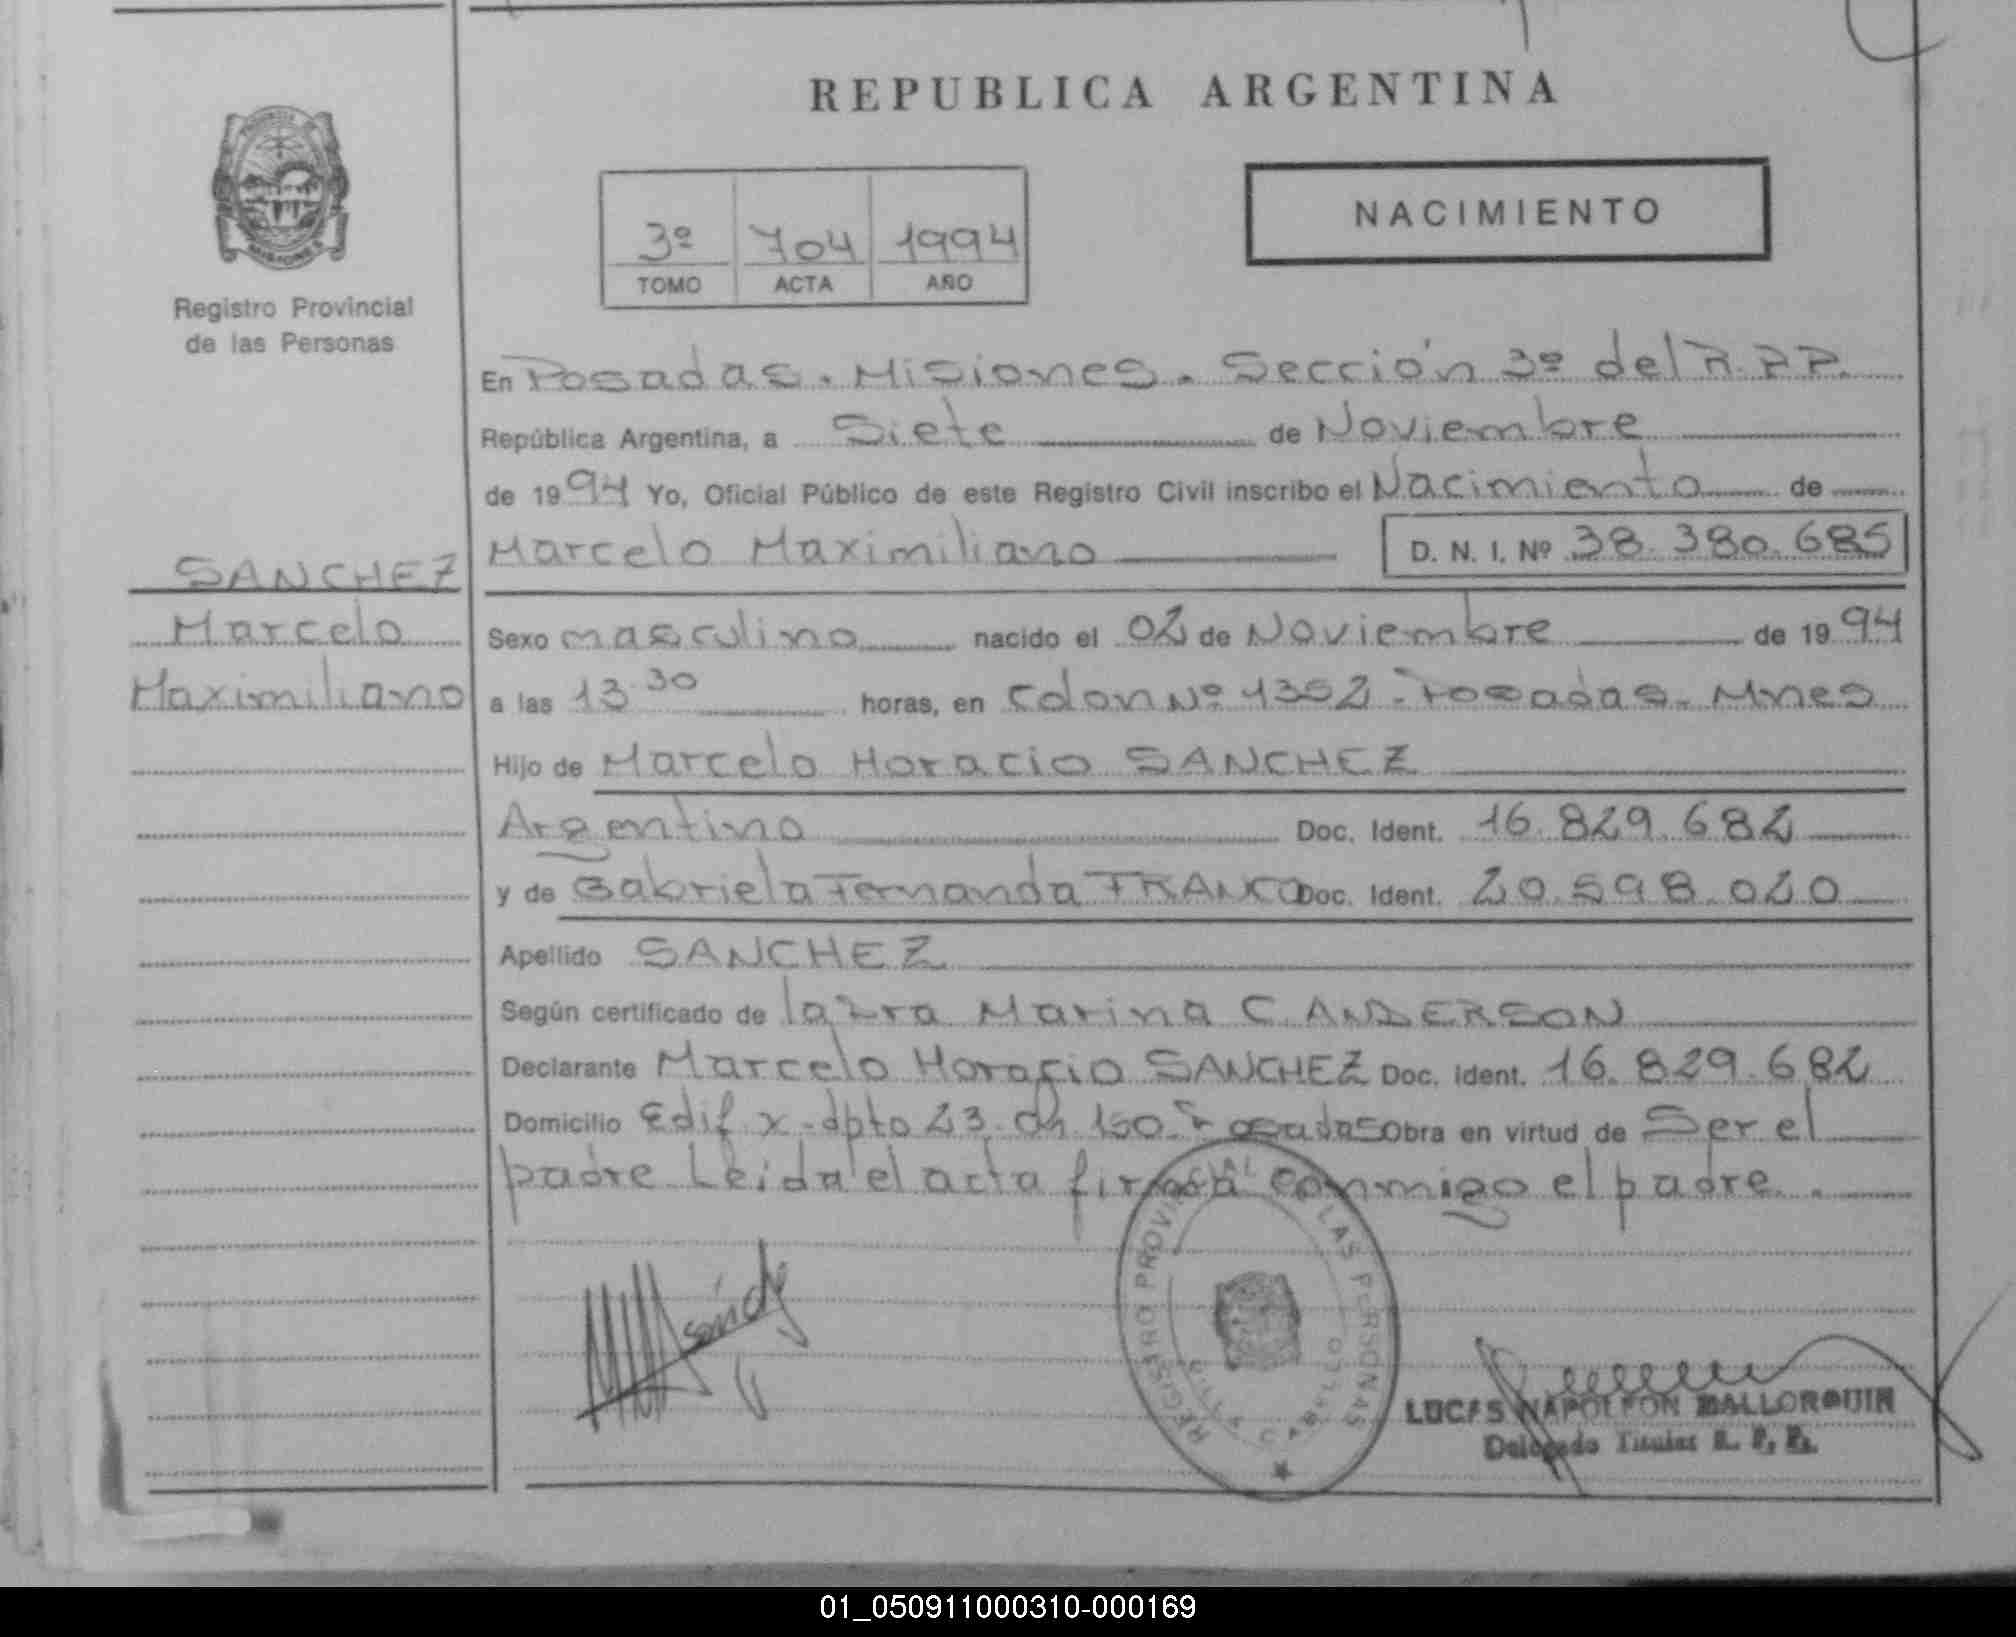 REPUBLICA ARGENTINA
NACIMIENTO
3º 704 1994
TOMO ACTA AÑO
Registro Provincial
de las Personas
En Posadas. Misiones. Sección 3º del R.P.P.
República Argentina, a Siete de Noviembre
de 1994 Yo, Oficial Público de este Registro Civil inscribo el Nacimiento de
SANCHEZ
Marcelo
Maximiliano
Marcelo Maximiliano D. N. I. Nº 38.380.685
Sexo masculino nacido el 02 de Noviembre de 1994
a las 13 30 horas, en Colon Nº 1352 - Posadas - Mnes
Hijo de Marcelo Horacio SANCHEZ
Argentino Doc. Ident. 16.829.682
y de Gabriela Fernanda FRANCO Doc. Ident. 20.598.020
Apellido SANCHEZ
Según certificado de la Marina C. ANDERSON
Declarante Marcelo Horacio SANCHEZ Doc. Ident. 16.829.682
Domicilio Edif x - dpto 23 Ch 150 Posadas Obra en virtud de Ser el
padre Leida el acta firma conmigo el padre.
REGISTRO PROVINCIAL DE LAS PERSONAS
LUCAS NAPOLEON MALLORQUIN
Delegado Titular R. P. P.
01_050911000310-000169